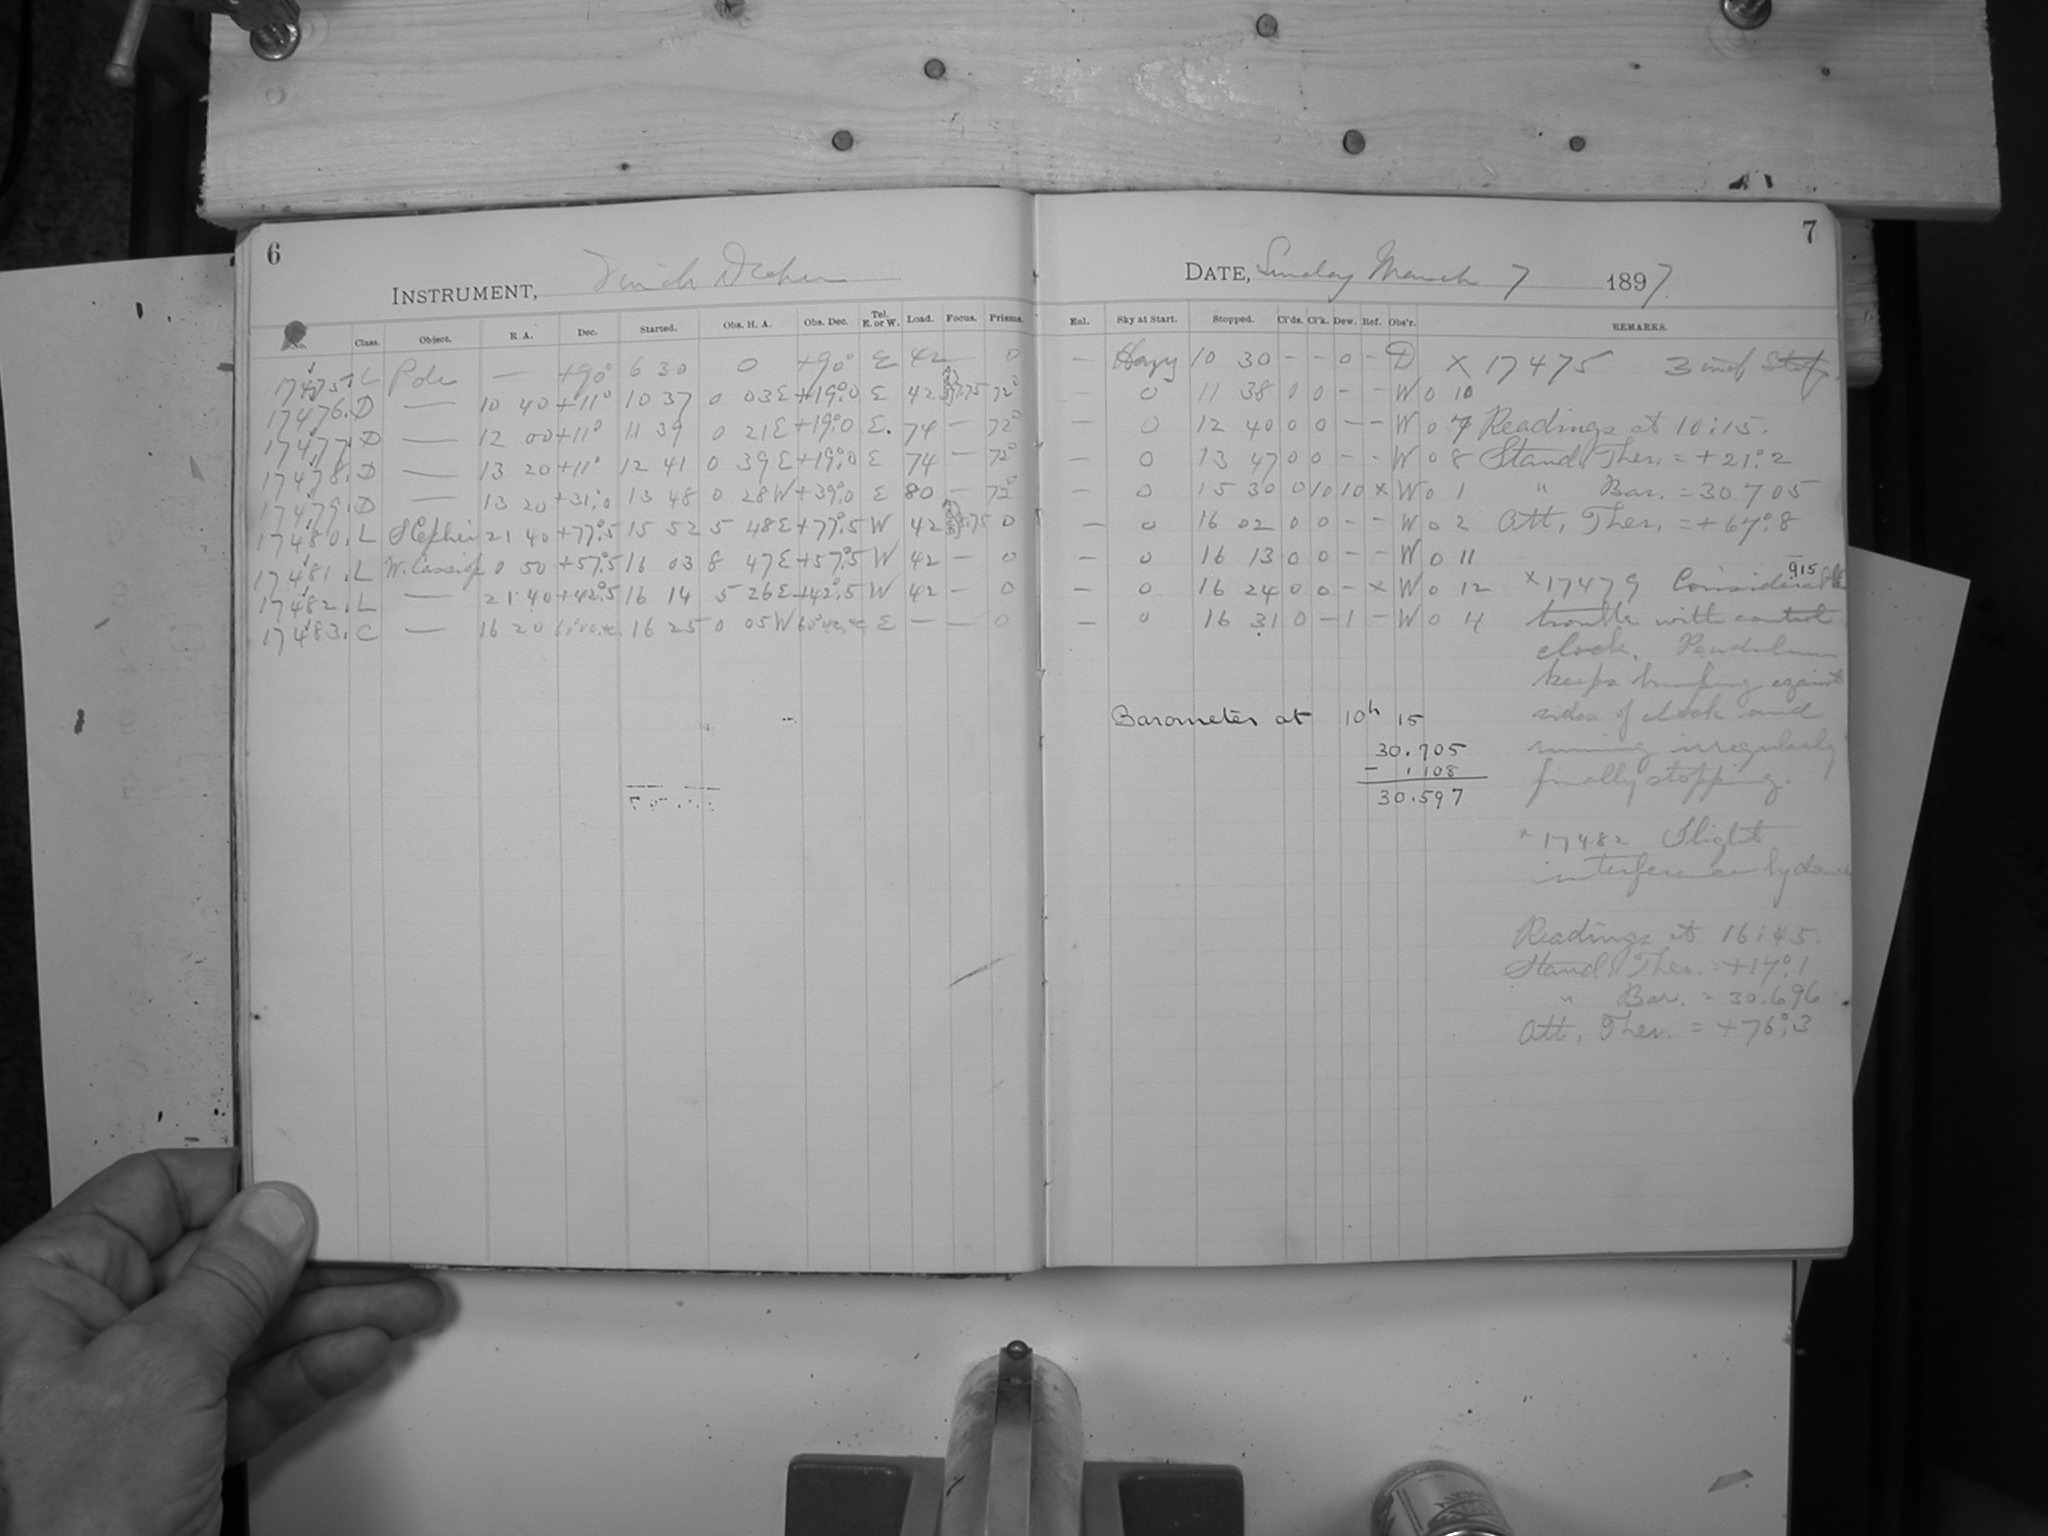 6
INSTRUMENT, 11 inch Draper
No. Class. Object. R. A. Dec. Started. Obs. H. A. Obs. Dec. Tel. E. or W. Load. Focus. Prisms.
17475. L Pole — +90° 6 30 0 +90° E 42 — 0
17476. D — 10 40 +11° 10 37 0 03E +19°.0 E 42 72°
17477. D — 12 00 +11° 11 39 0 21E +19°.0 E. 74 — 72°
17478. D — 13 20 +11° 12 41 0 39E +19°.0 E 74 — 72°
17479. D — 13 20 +31°.0 13 48 0 28W +39°.0 E 80 — 72°
17480. L S Cephei 21 40 +77°.5 15 52 5 48E +77°.5 W 42 0
17481. L W. Cassiop 0 50 +57°.5 16 03 8 47E +57°.5 W 42 — 0
17482. L — 21 40 +42°.5 16 14 5 26E +42°.5 W 42 — 0
17483. C — 16 20 16 25 0 05W E — — 0
7
DATE, Sunday March 7 1897.
Enl. Sky at Start. Stopped. Cl'ds. Cl'k. Dew. Ref. Obs'r. REMARKS.
— Hazy 10 30 – – 0 – D X 17475 3 inch Stop.
— 0 11 38 0 0 – – W 0 10
— 0 12 40 0 0 – – W 0 7 Readings at 10:15.
— 0 13 47 0 0 – – W 0 8 Stand. Ther. = +21°.2
— 0 15 30 0 10 10 x W 0 1 " Bar. = 30.705
— 0 16 02 0 0 – – W 0 2 Att, Ther. = +67°.8
— 0 16 13 0 0 – – W 0 11
915
— 0 16 24 0 0 – x W 0 12 x 17479 Considerable
— 0 16 31 0 – 1 – W 0 4 trouble with control
clock. Pendulum
keeps bumping against
sides of clock and
running irregularly
finally stopping.
Barometer at 10h 15
30.705
– .108
30.597
x 17482 Slight
interference by dome
Readings at 16:45.
Stand. Ther. = +17°.1
" Bar. = 30.696
Att, Ther. = +76°.3